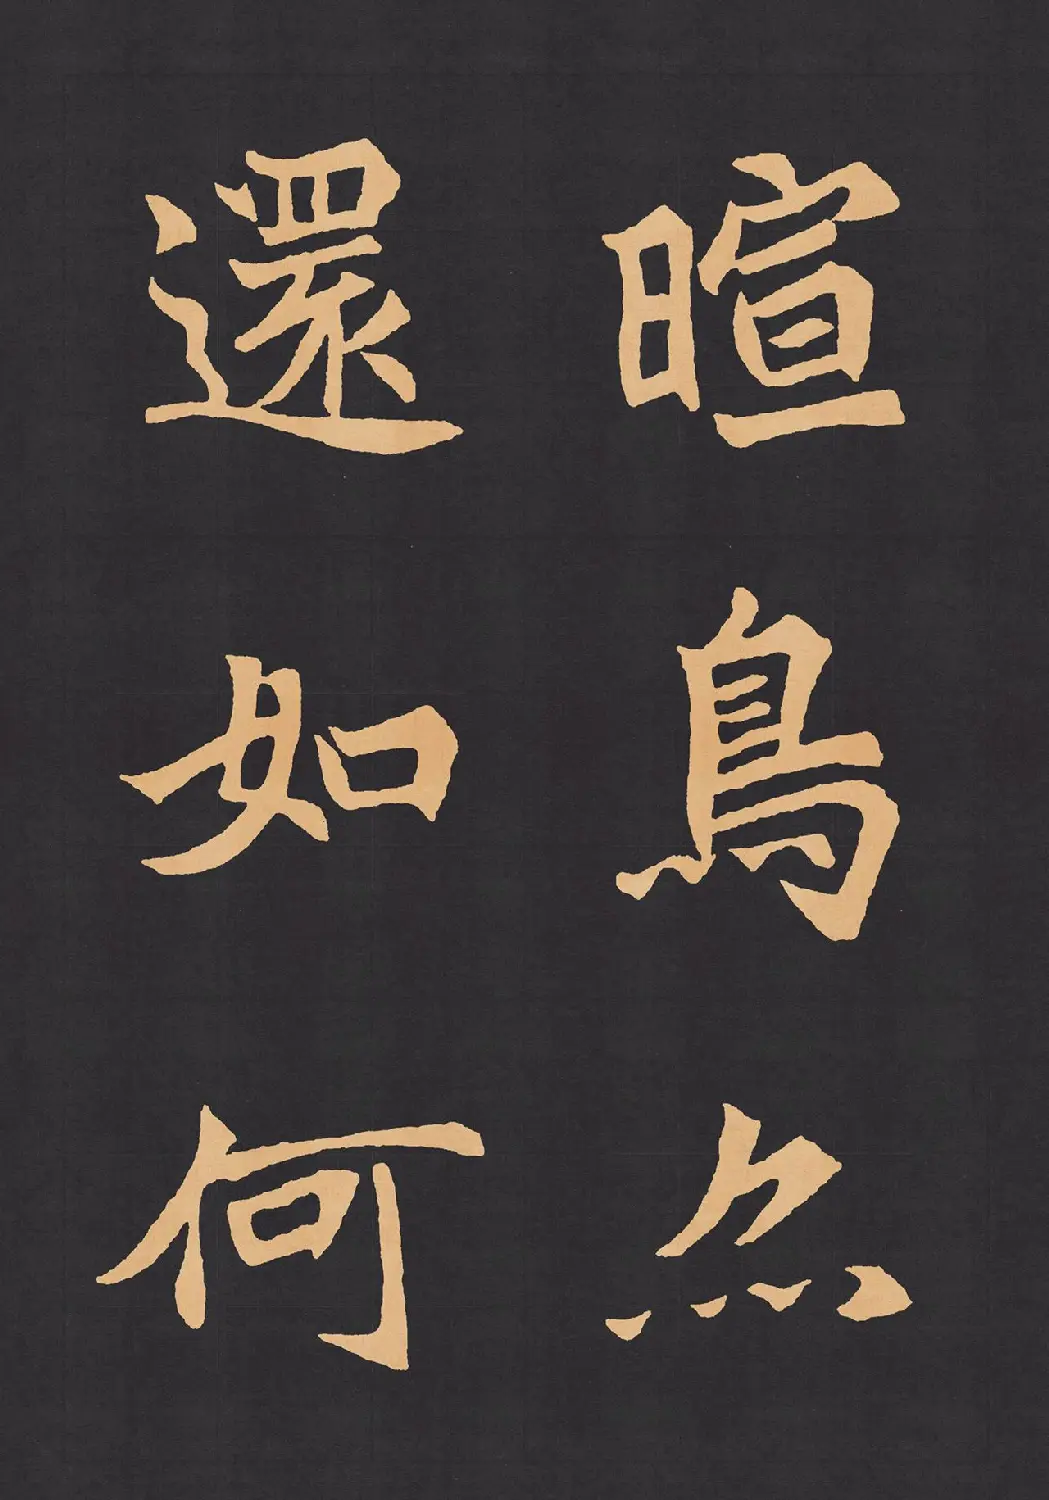 暄鳥
還如何